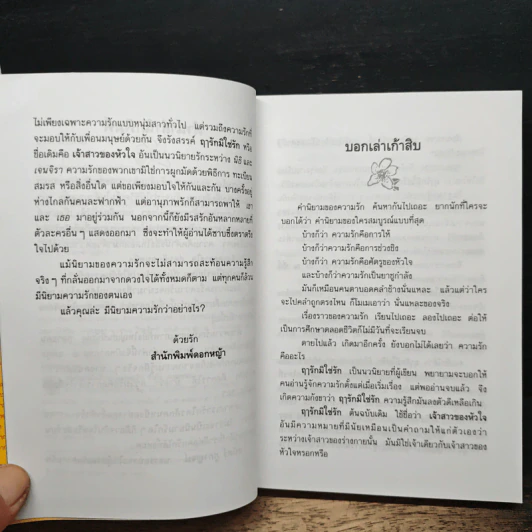 ไม่เพียงเฉพาะความรักแบบหนุ่มสาวทั่วไป แต่รวมถึงความรักที่
จะมอบให้กับเพื่อนมนุษย์ด้วยกัน จึงรังสรรค์ ฤๅรักมิใช่รัก หรือ
ชื่อเดิมคือ เจ้าสาวของหัวใจ อันเป็นนวนิยายรักระหว่าง นิธิ และ
เจนจิรา ความรักของพวกเขามิใช่การผูกมัดด้วยพิธีการ ทะเบียน
สมรส หรือสิ่งอื่นใด แต่ขอเพียงมอบใจให้กันและกัน บางครั้งอยู่
ห่างไกลกันคนละฟากฟ้า แต่อานุภาพรักก็สามารถพาให้ เขา
และ เธอ มาอยู่ร่วมกัน นอกจากนี้ก็ยังมีรสรักอันหลากหลายที่
ตัวละครอื่นๆ แสดงออกมา ซึ่งจะทำให้ผู้อ่านได้ซาบซึ้งตราตรึง
ใจไปด้วย
แม้นิยามของความรักจะไม่สามารถสะท้อนความรู้สึก
จริงๆ ที่กลั่นออกมาจากดวงใจได้ทั้งหมดก็ตาม แต่ทุกคนก็ล้วน
มีนิยามความรักของตนเอง
แล้วคุณล่ะ มีนิยามความรักว่าอย่างไร?
ด้วยรัก
สำนักพิมพ์ดอกหญ้า
บอกเล่าเก้าสิบ
คำนิยามของความรัก ค้นหากันไปเถอะ ยากนักที่ใครจะ
บอกได้ว่า คำนิยามของใครสมบูรณ์แบบที่สุด
บ้างก็ว่า ความรักคือการให้
บ้างก็ว่าความรักคือการช่วงชิง
บ้างก็ว่า ความรักคือศัตรูของหัวใจ
และบ้างก็ว่าความรักเป็นยาชูกำลัง
มันก็เหมือนคนตาบอดคลำช้างนั่นแหละ แล้วแต่ว่าใคร
จะไปคลำถูกตรงไหน ก็โมเมเอาว่า นั่นแหละของจริง
เรื่องราวของความรัก เรียนไปเถอะ ลองไปเถอะ ต่อให้
เป็นการศึกษาตลอดชีวิตก็ไม่มีวันที่จะเรียนจบ
ตายไปแล้ว เกิดมาอีกครั้ง ยังบอกไม่ได้เลยว่า ความรัก
คืออะไร
ฤๅรักมิใช่รัก เป็นนวนิยายที่ผู้เขียน พยายามจะบอกให้
คนอ่านรู้จักความรักตั้งแต่เมื่อเริ่มเรื่อง แต่พออ่านจบแล้ว จึง
เกิดความกังขาว่า ฤๅรักมิใช่รัก ความรู้สึกมันลงตัวดีเหลือเกิน
ฤๅรักมิใช่รัก ต้นฉบับเดิม ใช้ชื่อว่า เจ้าสาวของหัวใจ
อันมีความหมายที่มีนัยเหมือนเป็นคำถามให้แก่ตัวเองว่า
ระหว่างเจ้าสาวของร่างกายนั้น มันมิใช่เจ้าเดียวกับเจ้าสาวของ
หัวใจหรอกหรือ